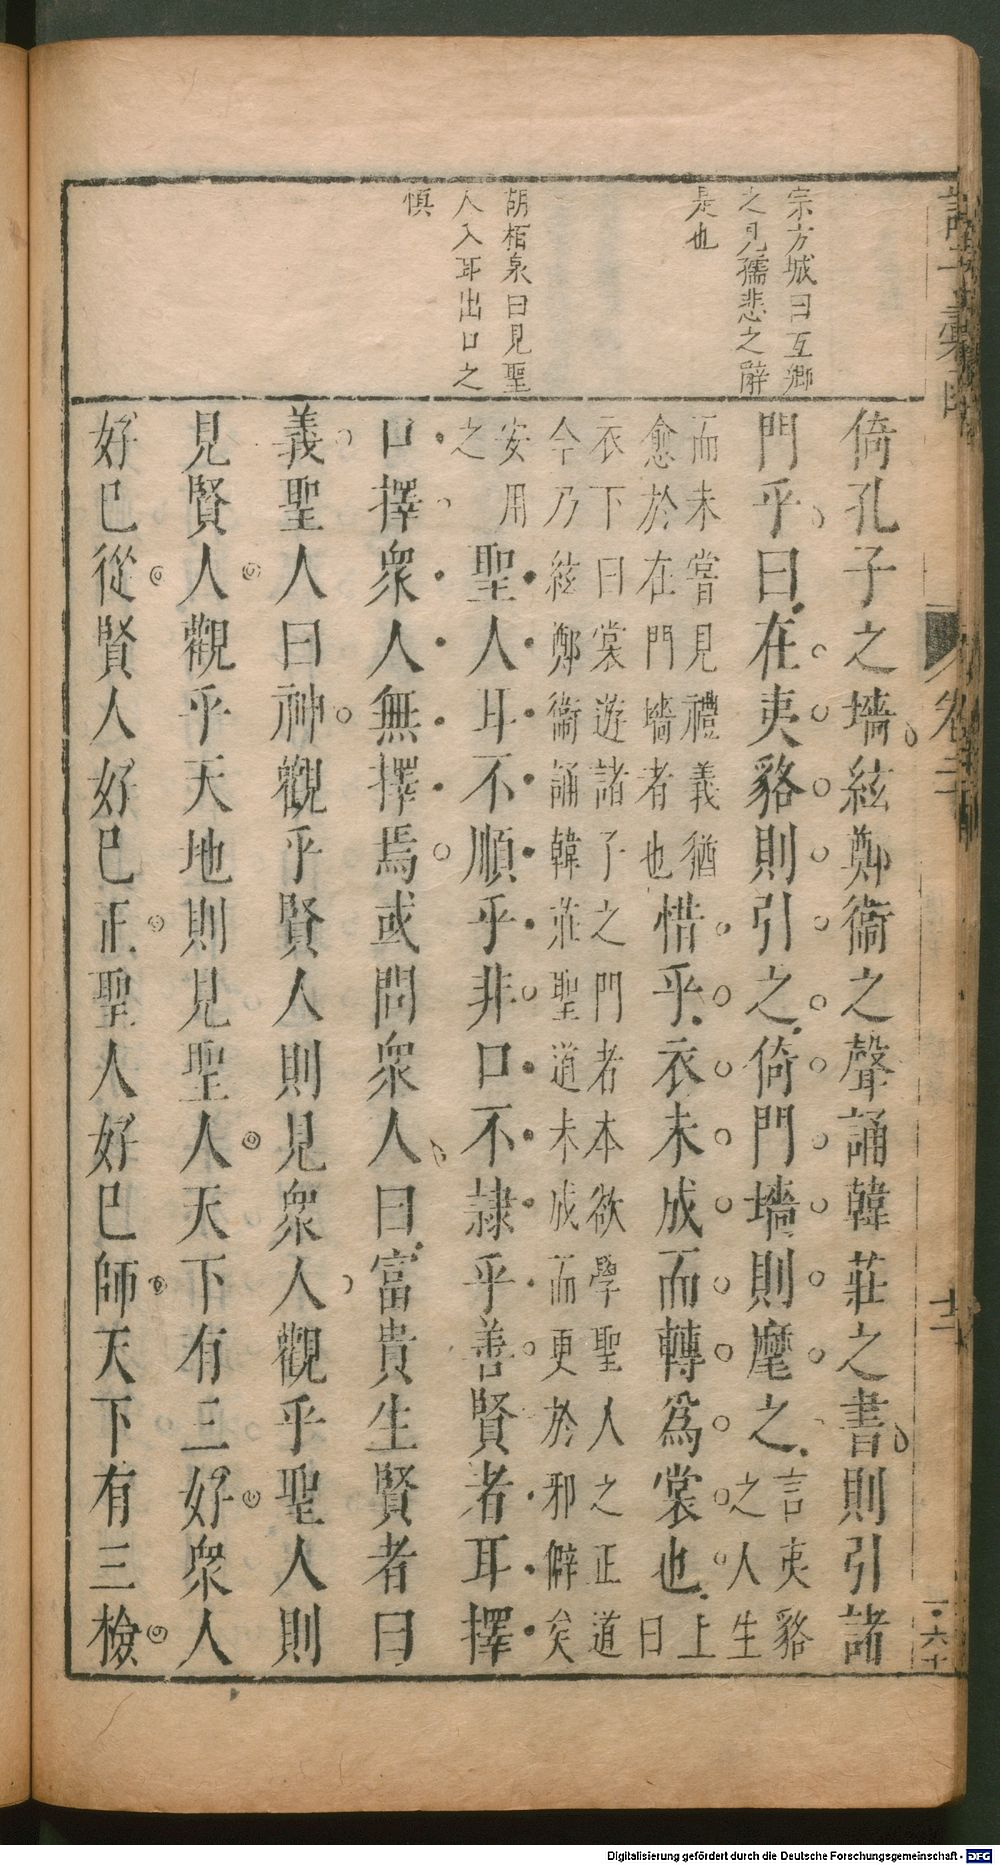 宗方城曰互鄉
之見孺悲之辭
是也
胡栢泉曰見聖
人入耳出口之
慎
倚孔子之墻絃鄭衞之聲誦韓莊之書則引諸
門乎曰在夷貉則引之倚門墻則麾之言夷貉之人生
而未嘗見禮義猶愈於在門墻者也惜乎衣未成而轉爲裳也上曰
衣下曰裳遊諸子之門者本欲學聖人之正道今乃絃鄭衞誦韓莊聖道未成而更於邪僻矣
安用之聖人耳不順乎非口不隷乎善賢者耳擇
口擇衆人無擇焉或問衆人曰富貴生賢者曰
義聖人曰神觀乎賢人則見衆人觀乎聖人則
見賢人觀乎天地則見聖人天下有三好衆人
好已從賢人好已正聖人好已師天下有三檢
卷二
十二
Digitalisierung gefördert durch die Deutsche Forschungsgemeinschaft - DFG